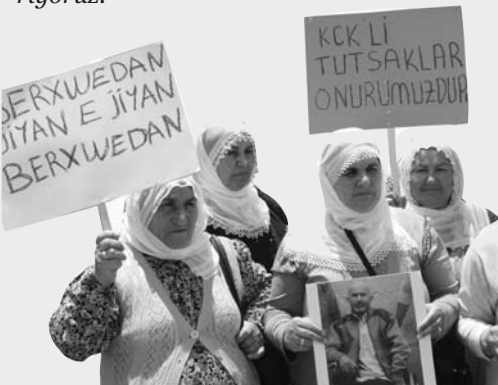 BERXWEDAN
JİYAN E JİYAN
BERXWEDAN
KCK'Lİ
TUTSAKLAR
ONURUMUZDUR